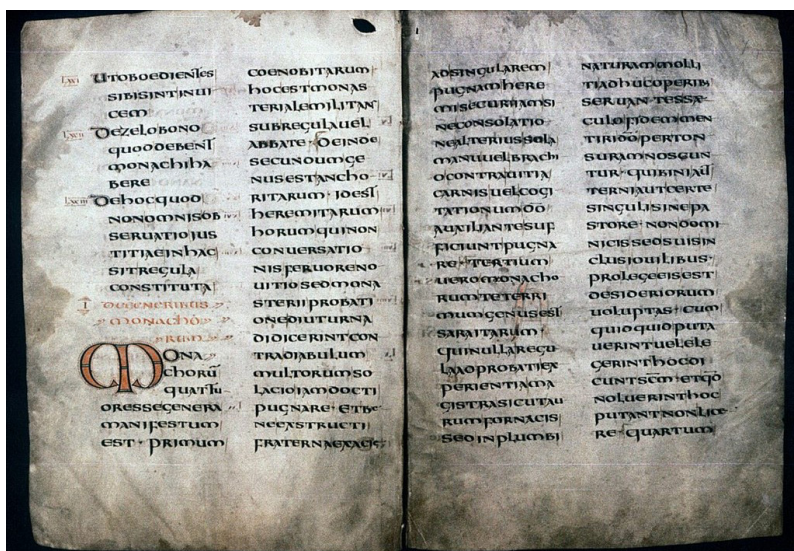 LXXI UTOBOEDIENTES
SIBISINTINUI
CEM
LXXII DEZELOBONO
QUODDEBENT
MONACHIHA
BERE
LXXIII DEHOCQUOD
NONOMNISOB
SERUATIOIUS
TITIAEINHAC
SITREGULA
CONSTITUTA
I DEGENERIBUS
MONACHO
RUM
MONA
CHORŪ
QUATTU
ORESSEGENERA
MANIFESTUM
EST · PRIMUM
COENOBITARUM
HOCESTMONAS
TERIALEMILITANT
SUBREGULAUEL
ABBATE · DEINDE
SECUNDUMGE
NUSESTANCHO
RITARUM · IDEST
HEREMITARUM
HORUMQUINON
CONUERSATIO
NISFERUORENO
UITIOSEDMONA
STERIIPROBATI
ONEDIUTURNA
DIDICERINTCON
TRADIABULUM
MULTORUMSO
LACIOIAMDOCTI
PUGNARE · ETBE
NEEXSTRUCTI
FRATERNAEXACIE
ADSINGULAREM
PUGNAMHERE
MISECURIIAMSI
NECONSOLATIO
NEALTERIUSSOLA
MANUUELBRACHI
OCONTRAUITIA
CARNISUELCOGI
TATIONUMDŌ
AUXILIANTESUF
FICIUNTPUGNA
RE · TERTIUM
UEROMONACHO
RUMTETERRI
MUMGENUSEST
SARAITARUM ·
QUINULLAREGU
LAADPROBATIEX
PERIENTIAMA
GISTRASICUTAU
RUMFORNACIS
SEDINPLUMBI
NATURAMMOLLI
TIADHUCOPERIB
SERUANTESSAE
CULOFIDEMMEN
TIRIDŌPERTON
SURAMNOSCUN
TUR · QUIBINIAUT
TERNIAUTCERTE
SINGULISINEPA
STORE · NONDOMI
NICISSEDSUISIN
CLUSIOUILIBUS ·
PROLEGEEISEST
DESIDERIORUM
UOLUPTAS · CUM
QUIDQUIDPUTA
UERINTUELELE
GERINTHOCDI
CUNTSCM̄ETQD̄
NOLUERINTHOC
PUTANTNONLICE
RE · QUARTUM